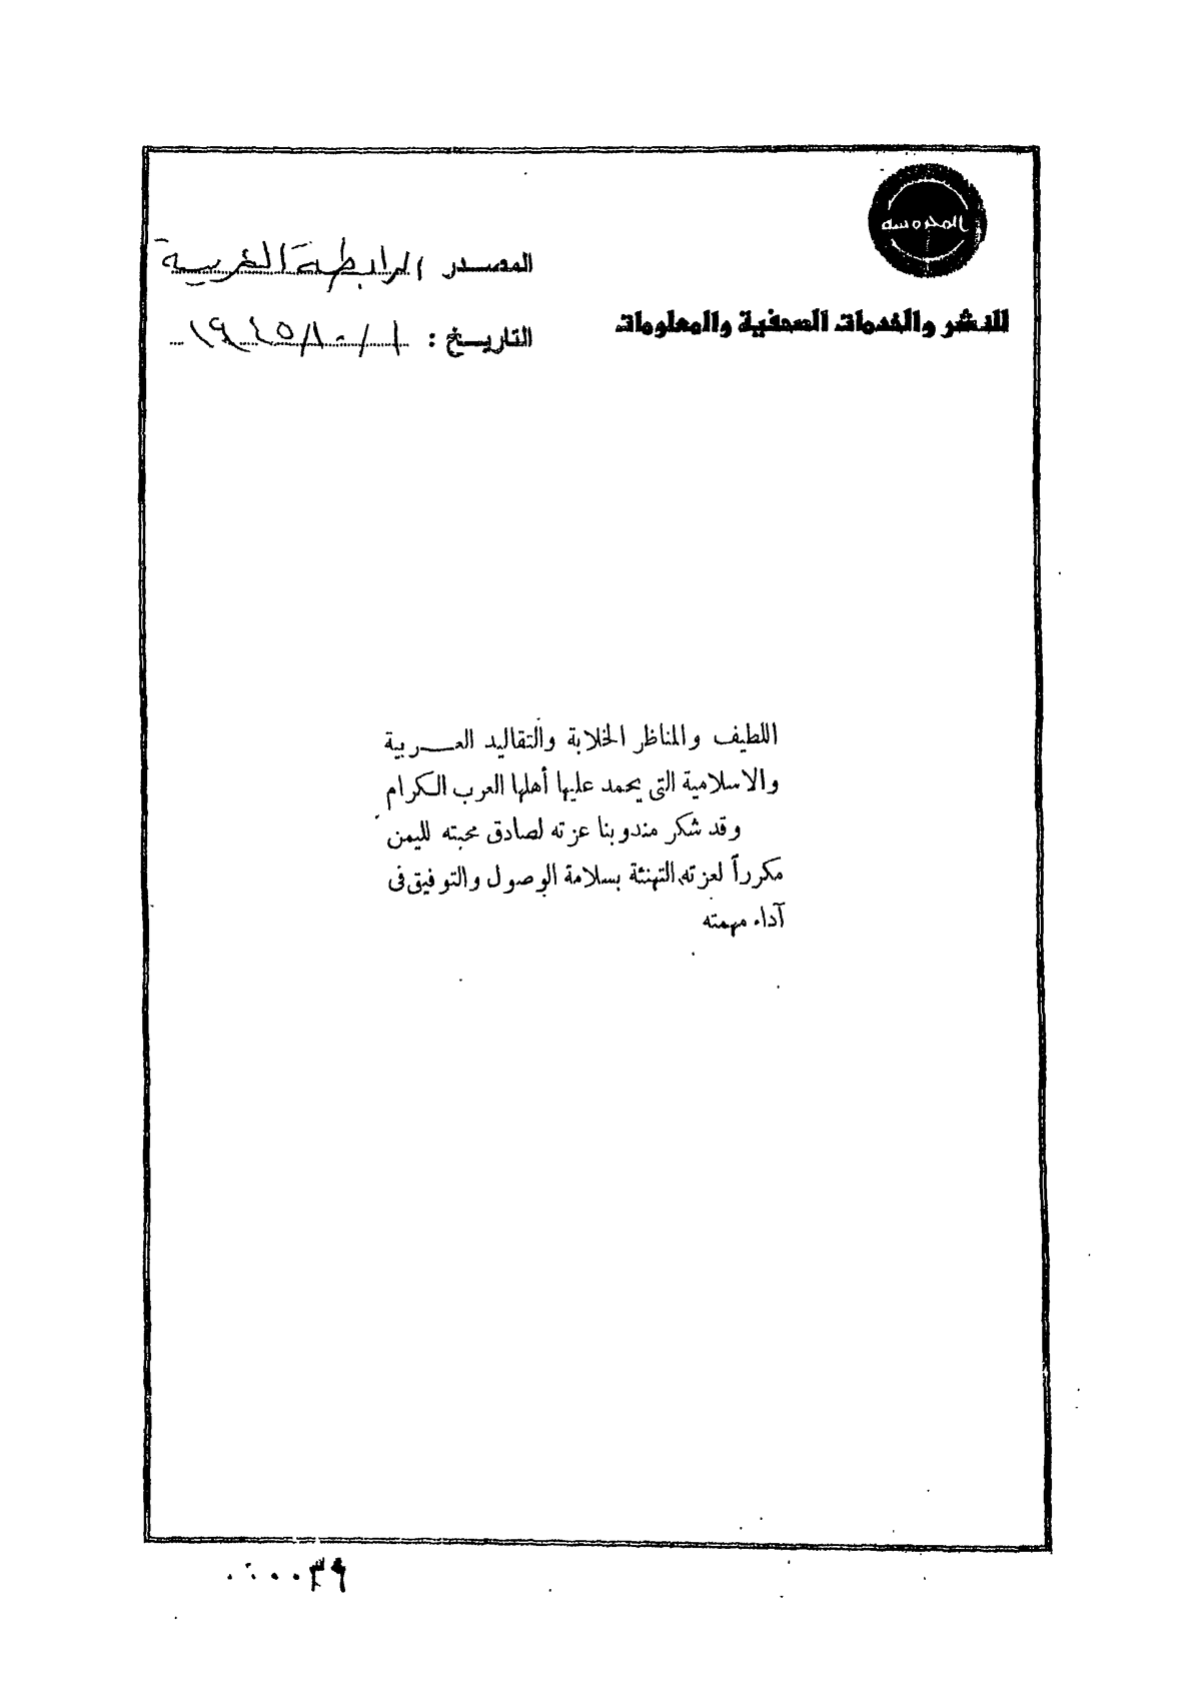 المحروسة
للنشر والخدمات الصحفية والمعلومات
المصدر الرابطة العربية
التاريخ : ١ / ١٠ / ١٩٤٥
اللطيف والمناظر الخلابة والتقاليد العربية
والاسلامية التى يحمد عليها أهلها العرب الكرام
وقد شكر مندوبنا عزته لصادق محبته لليمن
مكرراً لعزته التهنئة بسلامة الوصول والتوفيق فى
آداء مهمته
٠٠٠٠٣٩